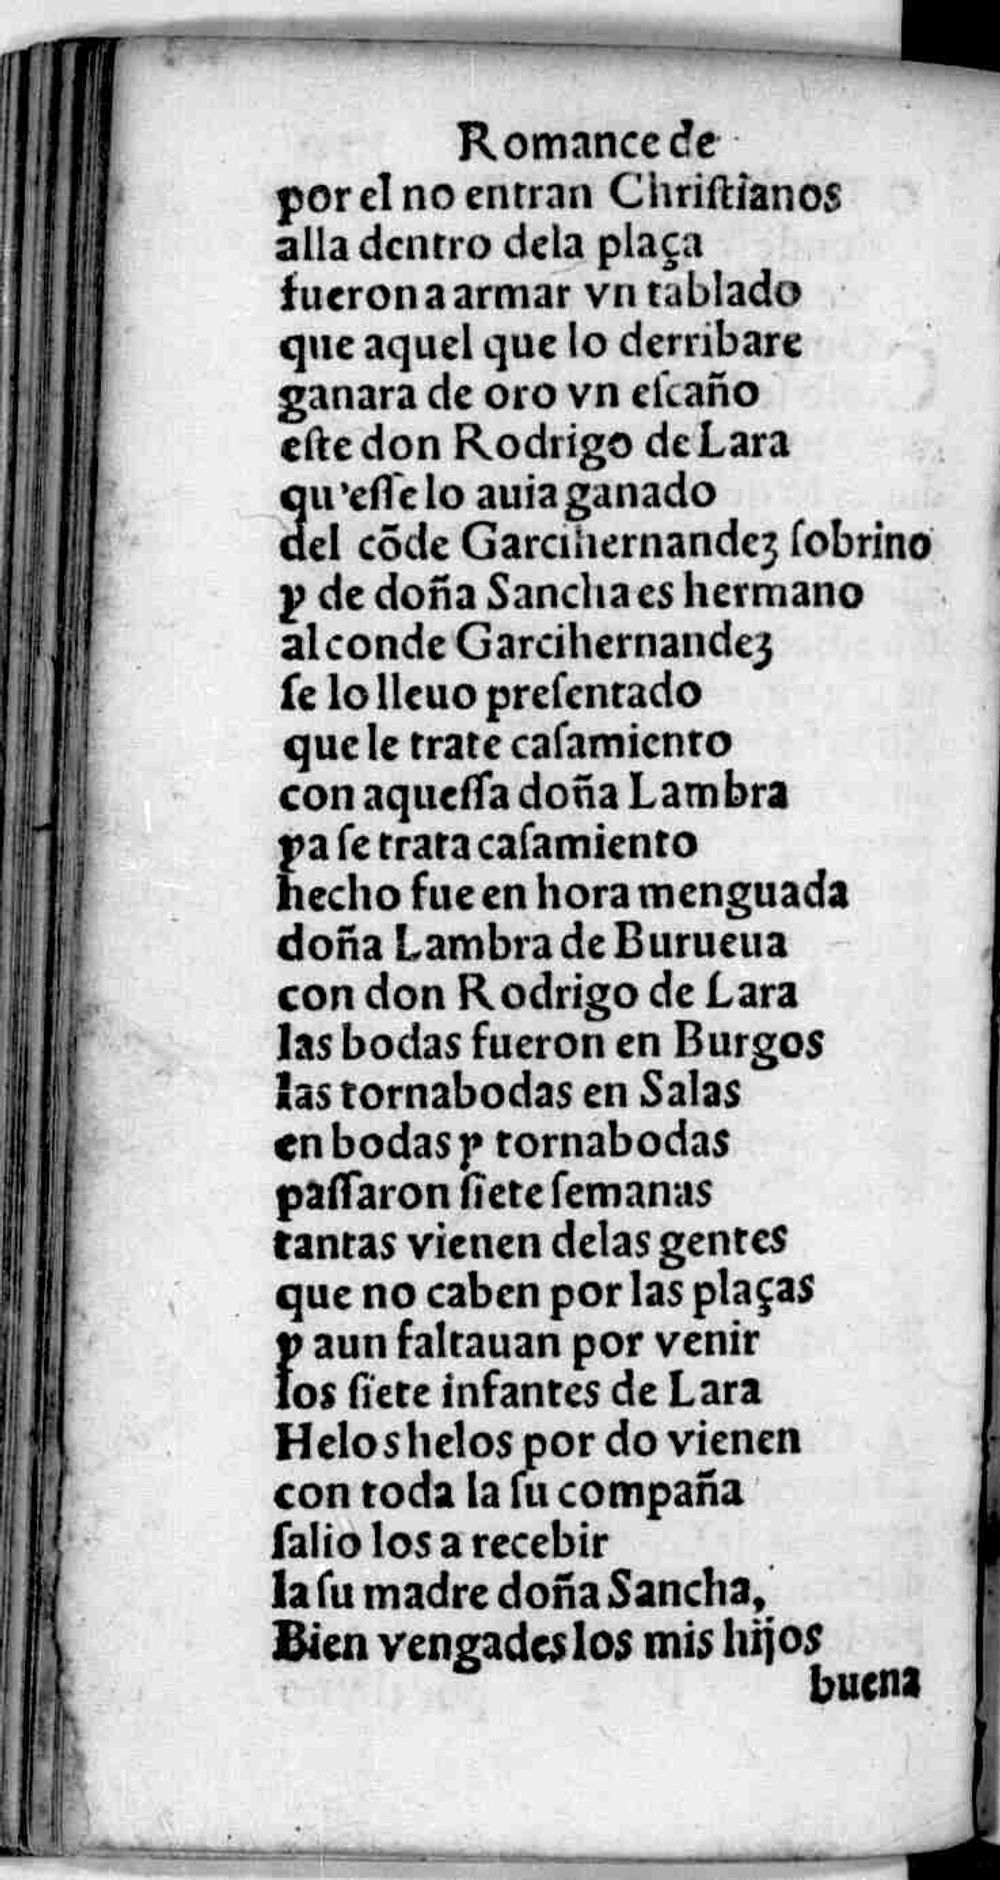 Romance de
por el no entran Chriſtianos
alla dentro dela plaça
fueron a armar vn tablado
que aquel que lo derribare
ganara de oro vn eſcaño
eſte don Rodrigo de Lara
qu'eſſe lo auia ganado
del cõde Garcihernandez ſobrino
y de doña Sancha es hermano
al conde Garcihernandez
ſe lo lleuo preſentado
que le trate caſamiento
con aqueſſa doña Lambra
ya ſe trata caſamiento
hecho fue en hora menguada
doña Lambra de Burueua
con don Rodrigo de Lara
las bodas fueron en Burgos
las tornabodas en Salas
en bodas y tornabodas
paſſaron ſiete ſemanas
tantas vienen delas gentes
que no caben por las plaças
y aun faltauan por venir
los ſiete infantes de Lara
Helos helos por do vienen
con toda la ſu compaña
ſalio los a recebir
la ſu madre doña Sancha,
Bien vengades los mis hijos
buena